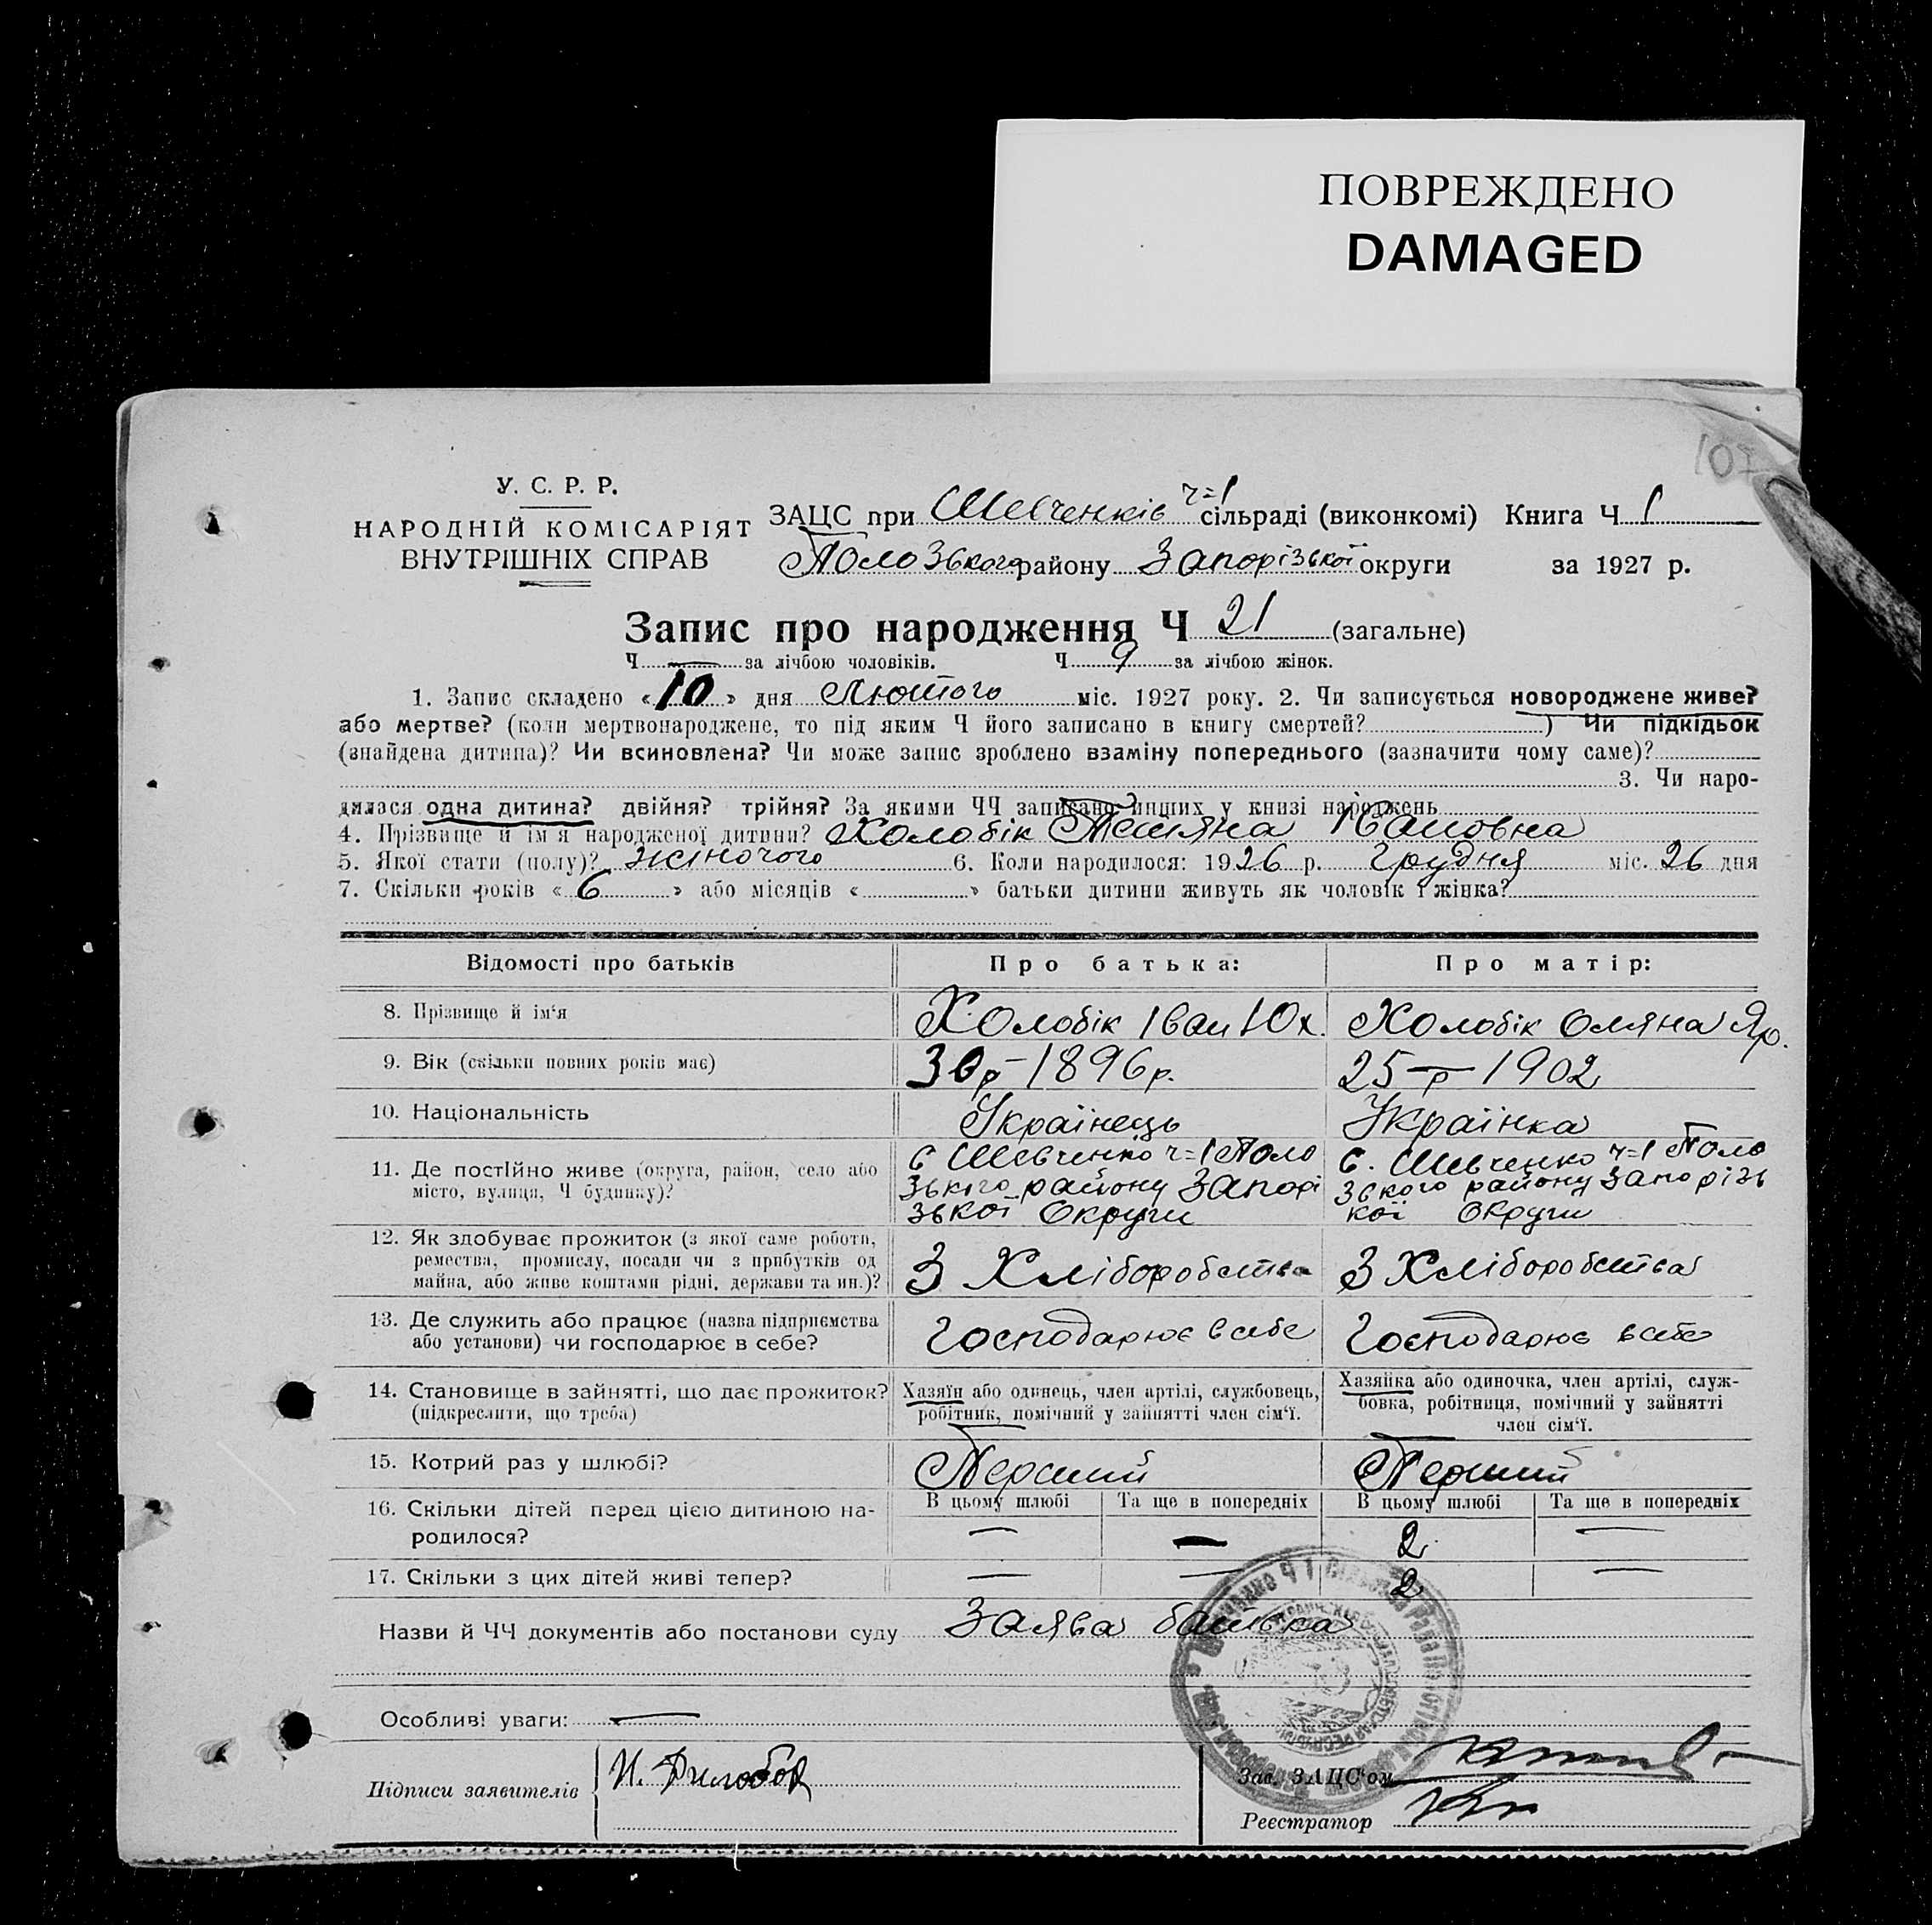 ПОВРЕЖДЕНО
DAMAGED
107
У. С. Р. Р.
НАРОДНІЙ КОМІСАРІЯТ
ВНУТРІШНІХ СПРАВ
ЗАЦС при Шевченків ч=1 сільраді (виконкомі) Книга Ч 1
Положського району Запорізької округи за 1927 р.
Запис про народження Ч 21 (загальне)
Ч — за лічбою чоловіків. Ч 9 за лічбою жінок.
1. Запис складено «10» дня Лютого міс. 1927 року. 2. Чи записується новороджене живе?
або мертве? (коли мертвонароджене, то під яким Ч його записано в книгу смертей? ) Чи підкідьок
(знайдена дитина)? Чи всиновлена? Чи може запис зроблено взаміну попереднього (зазначити чому саме)?
3. Чи наро-
дилася одна дитина? двійня? трійня? За якими ЧЧ записано инших у книзі народжень
4. Прізвище й ім'я народженої дитини? Холобік Тетяна Івановна
5. Якої стати (полу)? жіночого 6. Коли народилося: 1926 р. Грудня міс. 26 дня
7. Скільки років «6» або місяців « » батьки дитини живуть як чоловік і жінка?
Відомості про батьків Про батька: Про матір:
8. Прізвище й ім'я Холобік Іван Юх. Холобік Оляна Яр.
9. Вік (скільки повних років має) 30 р – 1896 р. 25 – р 1902
10. Національність Українець Українка
11. Де постійно живе (округа, район, село або
місто, вулиця, Ч будинку)?
С Шевченко ч=1 Поло
зького району Запорі
зької Округи
С. Шевченко ч=1 Поло
зького району Запорізь
кої Округи
12. Як здобуває прожиток (з якої саме роботи,
ремества, промислу, посади чи з прибутків од
майна, або живе коштами рідні, держави та ин.)?
З Хліборобства З Хліборобства
13. Де служить або працює (назва підприємства
або установи) чи господарює в себе?
Господарює в себе Господарює в себе
14. Становище в зайнятті, що дає прожиток?
(підкреслити, що треба)
Хазяїн або одинець, член артілі, службовець,
робітник, помічний у зайнятті член сім'ї.
Хазяйка або одиночка, член артілі, служ-
бовка, робітниця, помічний у зайнятті
член сім'ї.
15. Котрий раз у шлюбі? Перший Перший
16. Скільки дітей перед цією дитиною на-
родилося?
В цьому шлюбі Та ще в попередніх В цьому шлюбі Та ще в попередніх
— — 2 —
17. Скільки з цих дітей живі тепер? — — 2 —
Назви й ЧЧ документів або постанови суду Заява батька
Особливі уваги: —
Підписи заявителів
Зав. ЗАЦС'ом
Реєстратор